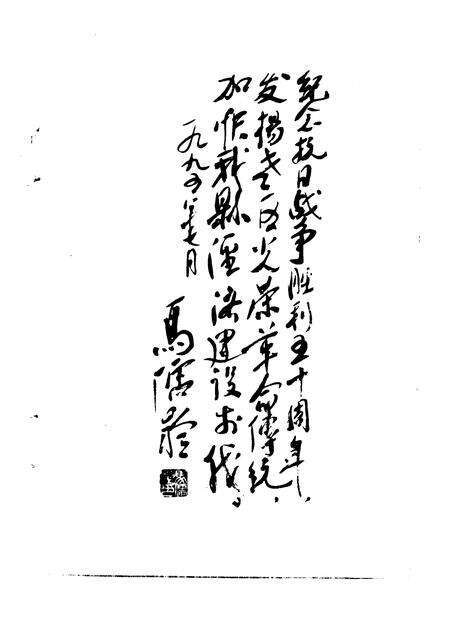 纪念抗日战争胜利五十周年，
发揚老区光荣革命傳统，
加快我縣經济建设步伐。
一九九五年七月
馬儒